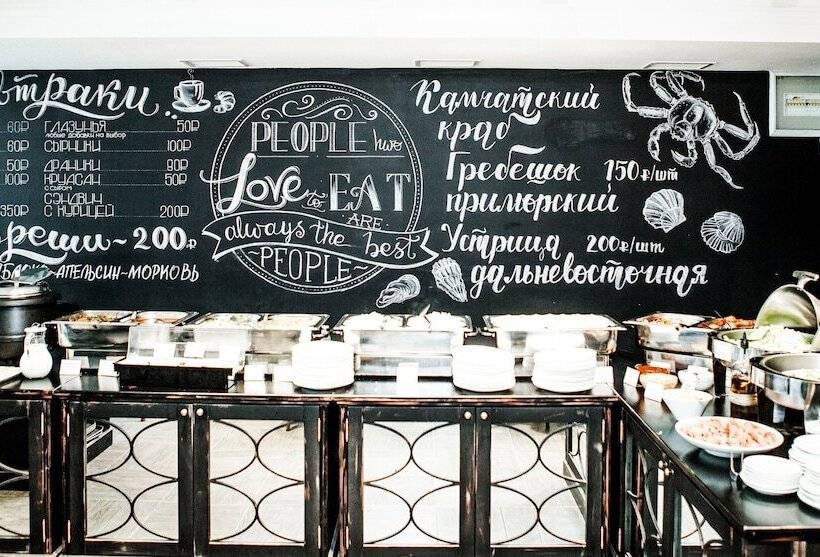 втраки
60₽ ГЛАЗУНЬЯ 50₽
любые добавки на выбор
60₽ СЫРНИКИ 100₽
50₽ ДРАНИКИ 90₽
100₽ КРУАСАН 50₽
С СЫРОМ
СЭНДВИЧ
350₽ С КУРИЦЕЙ 200₽
реши - 200₽
АПЕЛЬСИН-МОРКОВЬ
PEOPLE hwo
Love to EAT
ARE
always the best
PEOPLE
Камчатский
краб
Гребешок 150₽/шт
приморский
Устрица 200₽/шт
дальневосточная